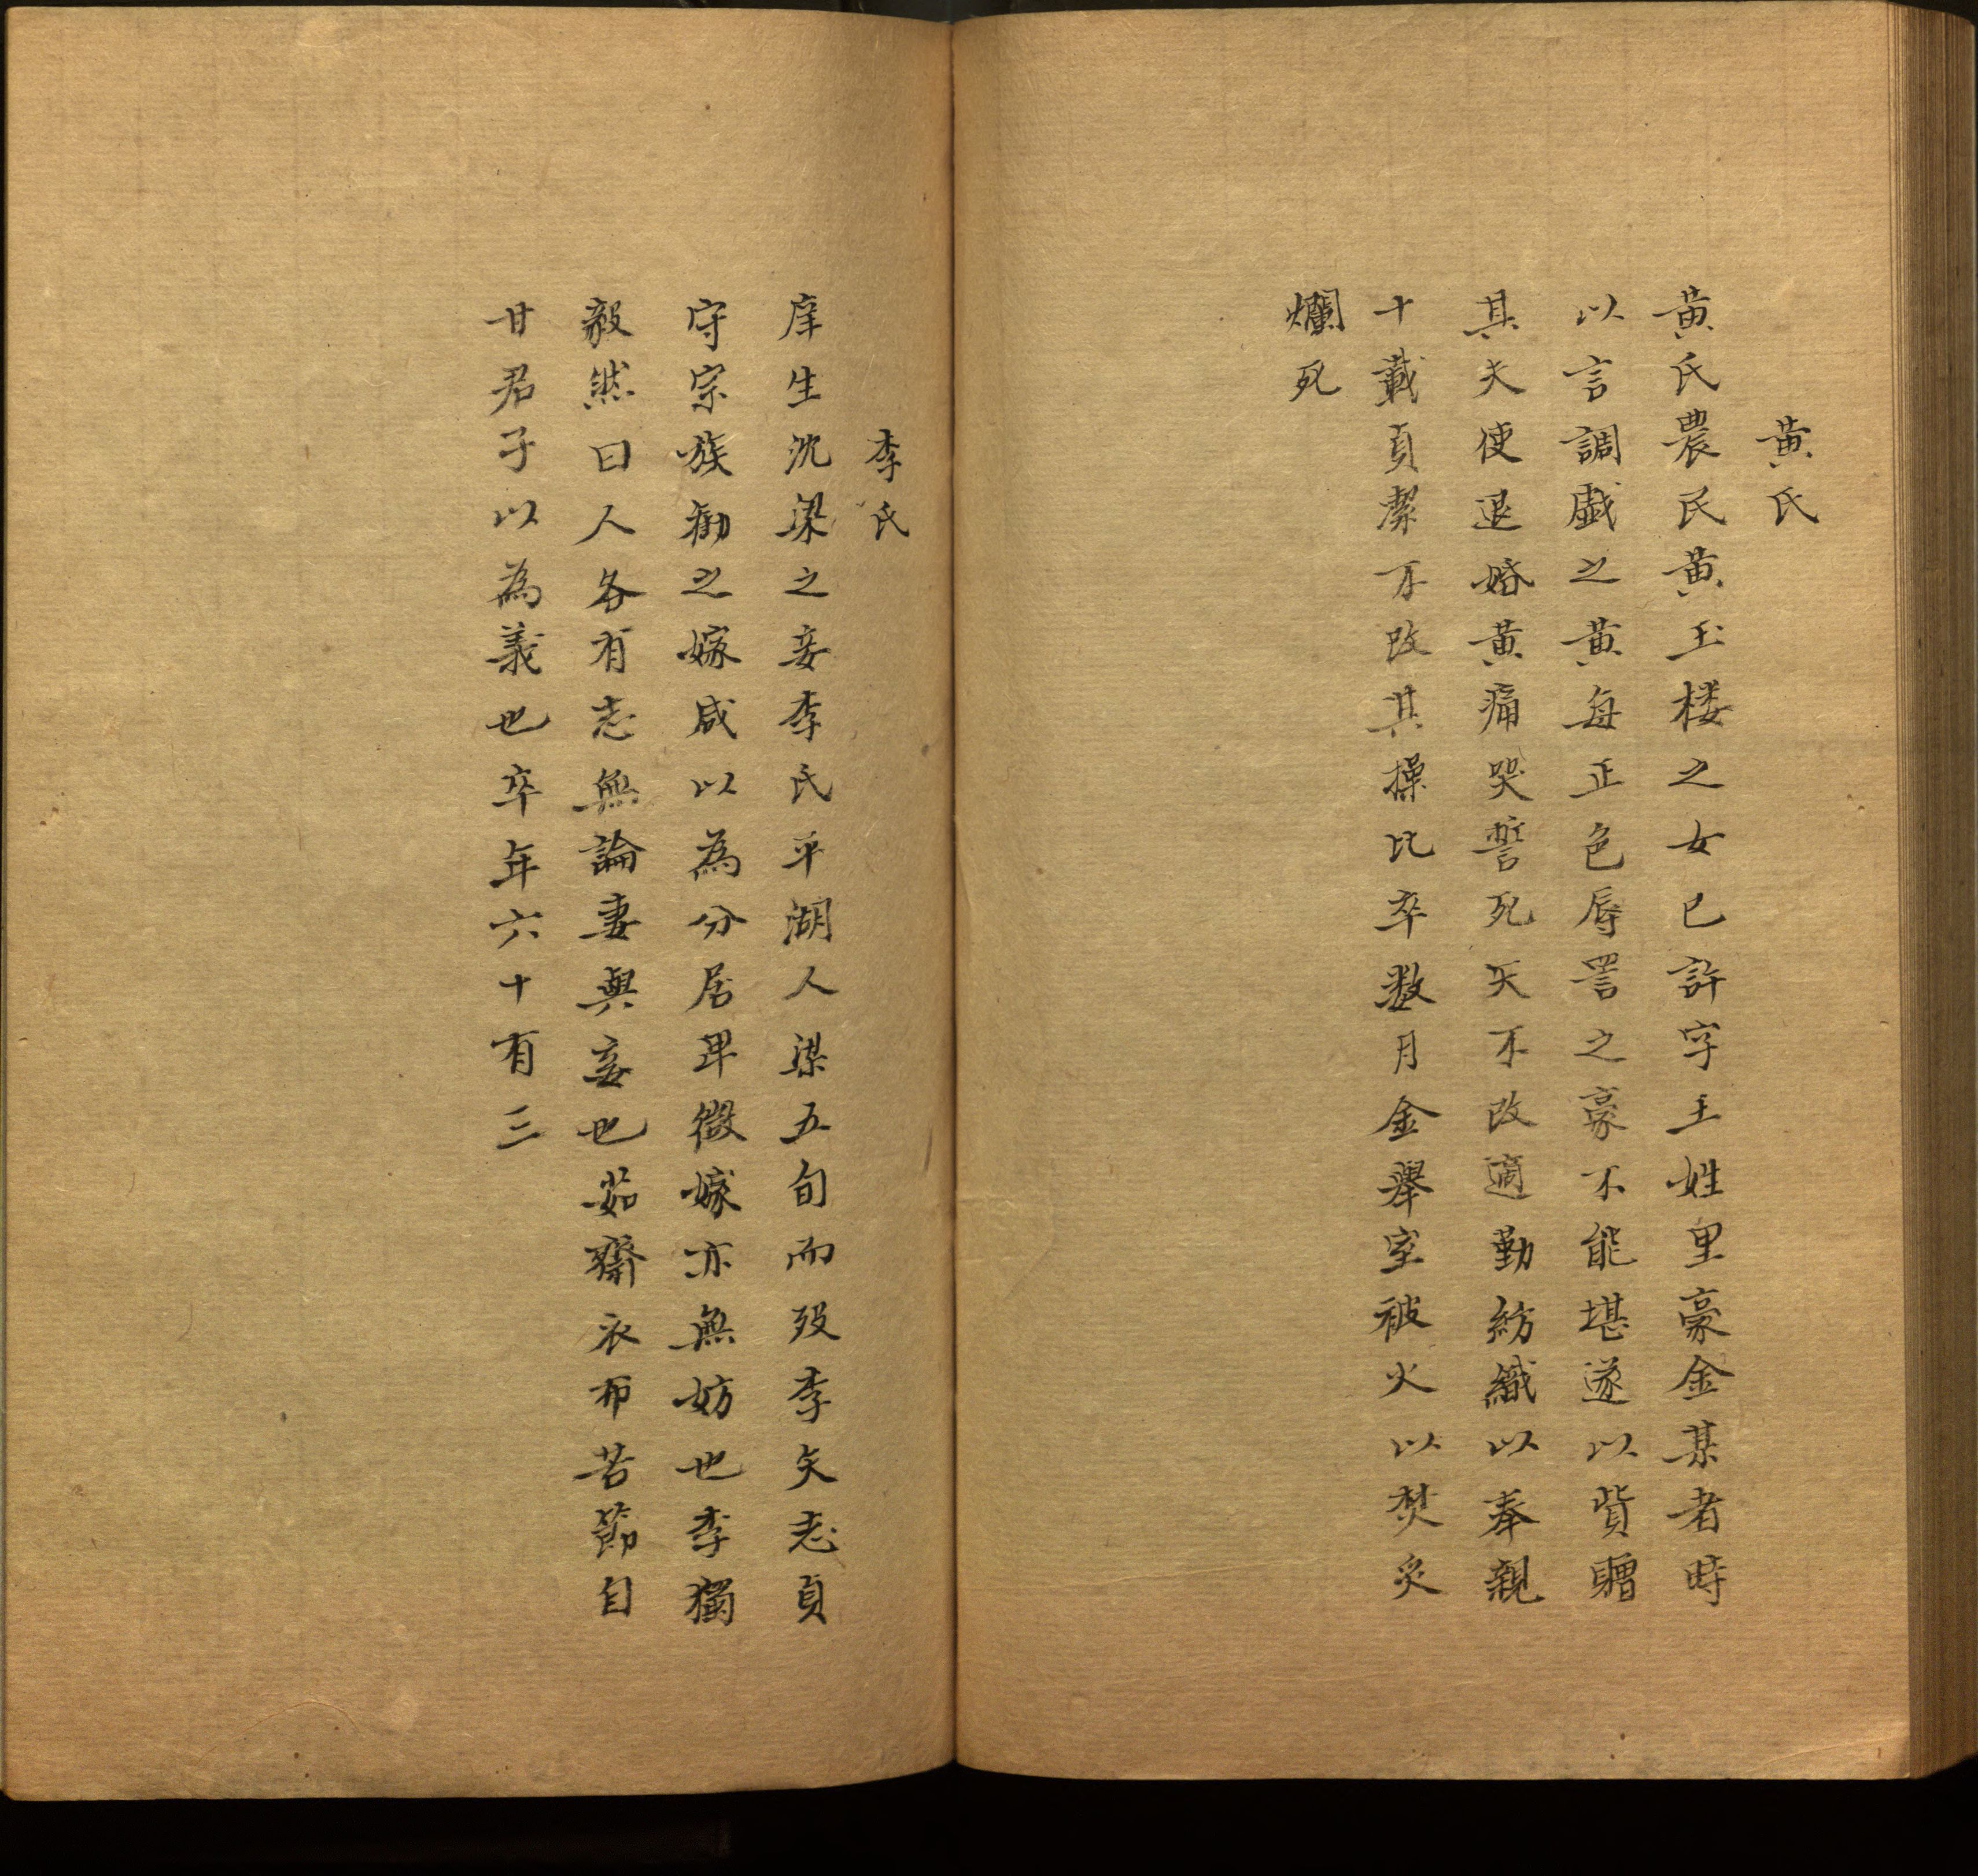 黃氏
黃氏農民黃玉楼之女已許字王姓里豪金某者時
以言調戯之黃每正色辱詈之豪不能堪遂以貲贈
其夫使退婚黃痛哭誓死矢不改適勤紡織以奉親
十載貞潔不改其操比卒数月金舉室被火以焚炙
爛死
李氏
庠生沈梁之妾李氏平湖人梁五旬而歿李矢志貞
守宗族勸之嫁咸以為分居卑微嫁亦無妨也李獨
毅然曰人各有志無論妻與妾也茹齋衣布苦節自
甘君子以為義也卒年六十有三